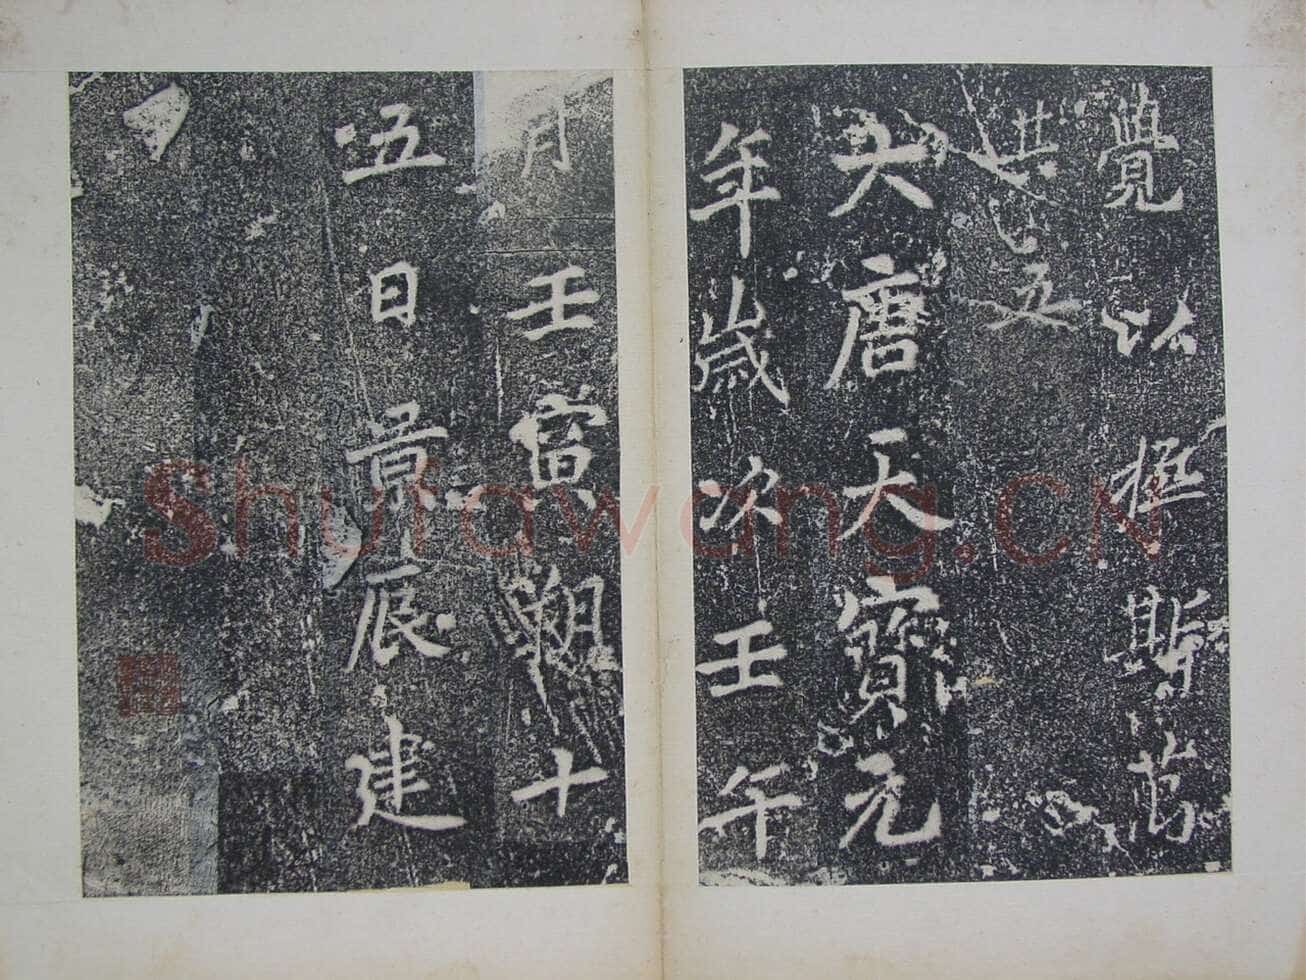 覺以拯斯苦
共五
大唐天寶元
年歲次壬午
月壬寅朔十
五日景辰建
Shufawang.CN